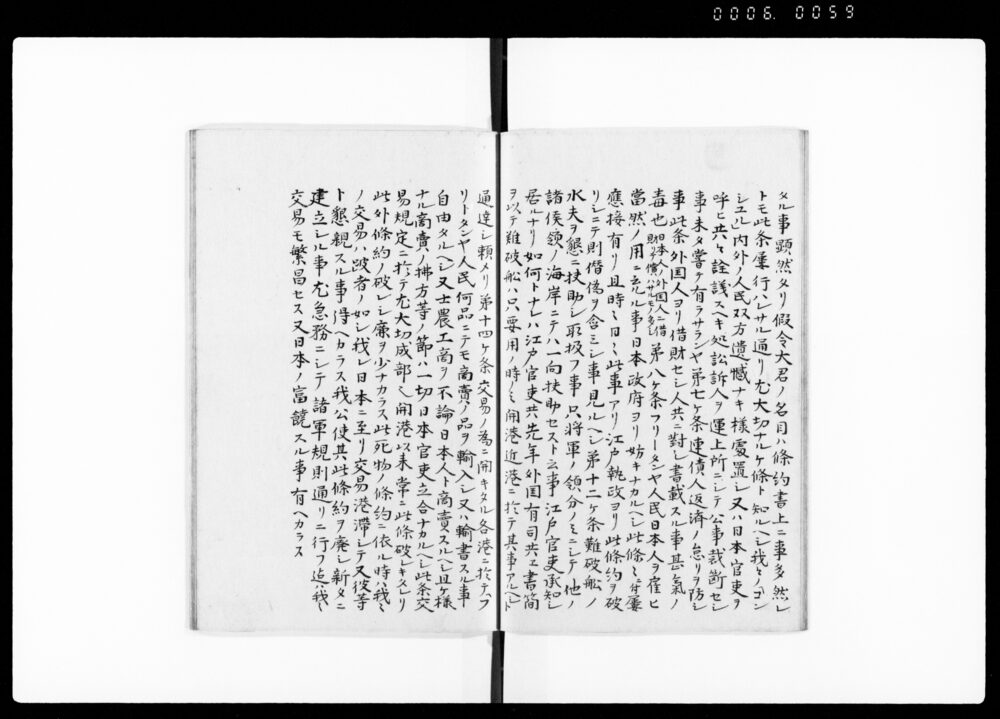 0006. 0059
タル事顕然タリ假令大君ノ名目ハ條約書上ニ事多然レ
トモ此条簾行ハレサル通リ尤大切ナルケ條ト知ルヘシ我々ノゴン
シユル内外ノ人民双方遺憾ナキ様處置シ又ハ日本官吏ヲ
呼ヒ共ニ詮議スヘキ処訟訴人ヲ運上所ニシテ公事裁断セシ
事未タ嘗テ有ラサランヤ第七ケ条逋債人返済ノ怠リヲ防シ
事此条外国人ヨリ借財セシ人共ニ對し書載スル事甚氣ノ
毒也 日本人ノ外国人ニ借 第八ケ条フリータンヤ人民日本人ヲ雇ヒ
當然ノ用ニ充ル事日本政府ヨリ妨キナカルヘシ此條ニ付屡
應接有リ且時々日々此事アリ江戸執政ヨリ此條約ヲ破
リシニテ則僭偽ヲ含ミシ事見ルヘシ第十二ケ条難破船ノ
水夫ヲ懇ニ扶助シ取扱フ事只将軍ノ領分ノミニシテ他ノ
諸侯領ノ海岸ニテハ一向扶助セスト云事江戸官吏承知シ
居ルナリ如何トナレハ江戸官吏共先年外国有司共エ書簡
ヲ以テ難破船ハ只要用ノ時ノミ開港近港ニ於テ其事アルヘシト
通達シ頼メリ第十四ケ条交易ノ為ニ開キタル各港ニ於テフ
リトタンヤ人民何品ニテモ商賣ノ品ヲ輸入シ又ハ輸書スル事
自由タルヘシ又士農工商ヲ不論日本人ト商賣スルヘシ且ケ様
ナル商賣ノ拂方等ノ節ハ一切日本官吏立合ナカルヘシ此条交
易規定ニ於テ尤大切成部シ開港以来常ニ此條破レキタレリ
此外條約ノ破レシ廉ヲ少ナカラス此死物ノ條約ニ依ル時ハ我々
ノ交易ハ跛者ノ如シ我レ日本ニ至リ交易港滞シテ又彼等
ト懇親スル事得ヘカラス我公使其此條約ヲ廃シ新タニ
建立シル事尤急務ニシテ諸軍規則通リニ行フ迄ハ我々
交易モ繁昌セス又日本ノ富饒スル事有ヘカラス